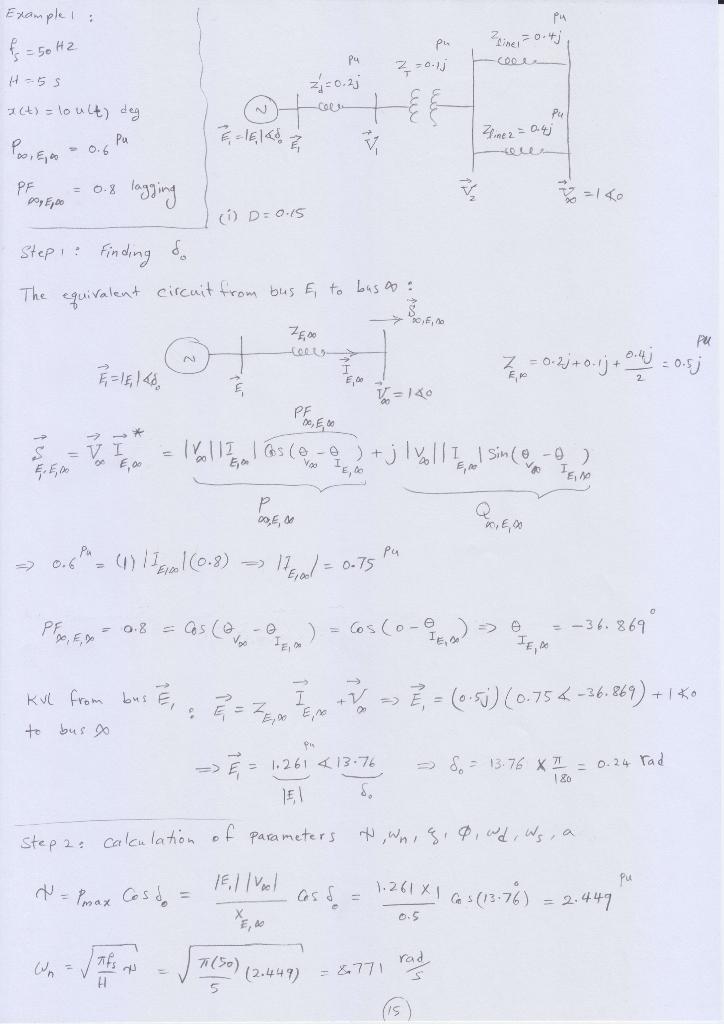 Example 1 :
f_s = 50 Hz
H = 5 s
x(t) = 10 u(t) deg
P_∞,E,∞ = 0.6 pu
PF_∞,E,∞ = 0.8 lagging
Z'_d = 0.2j pu
Z_T = 0.1j pu
Z_line1 = 0.4j pu
Z_line2 = 0.4j pu
E⃗_1 = |E_1|∡δ_0
E⃗_1
V⃗_1
V⃗_2
V⃗_∞ = 1∡0
(i) D = 0.15
Step 1 : Finding δ_0
The equivalent circuit from bus E_1 to bus ∞ :
S⃗_∞,E,∞
Z_E,∞
I⃗_E,∞
E⃗_1 = |E_1|∡δ_0
E⃗_1
V⃗_∞ = 1∡0
Z_E,∞ = 0.2j + 0.1j + 0.4j/2 = 0.5j pu
PF_∞,E,∞
S⃗_E,E,∞ = V⃗_∞ I⃗*_E,∞ = |V_∞||I_E,∞| Cos(θ_V∞ - θ_I E,∞) + j |V_∞||I_E,∞| Sin(θ_V∞ - θ_I E,∞)
P_∞,E,∞ Q_∞,E,∞
⇒ 0.6 pu = (1) |I_E,∞| (0.8) ⇒ |I_E,∞| = 0.75 pu
PF_∞,E,∞ = 0.8 = Cos(θ_V∞ - θ_I E,∞) = Cos(0 - θ_I E,∞) ⇒ θ_I E,∞ = -36.869°
KVL from bus E⃗_1 to bus ∞ : E⃗_1 = Z_E,∞ I⃗_E,∞ + V⃗_∞ ⇒ E⃗_1 = (0.5j)(0.75∡-36.869) + 1∡0
⇒ E⃗_1 = 1.261 pu ∡13.76 ⇒ δ_0 = 13.76 × π/180 = 0.24 rad
|E_1| δ_0
Step 2 : Calculation of parameters N, ω_n, ξ, Φ, ω_d, ω_s, a
N = P_max Cos δ_0 = |E_1||V_∞|/X_E,∞ Cos δ_0 = 1.261 × 1/0.5 Cos(13.76°) = 2.449 pu
ω_n = √(πf_s/H N) = √(π(50)/5 (2.449)) = 8.771 rad/s
15